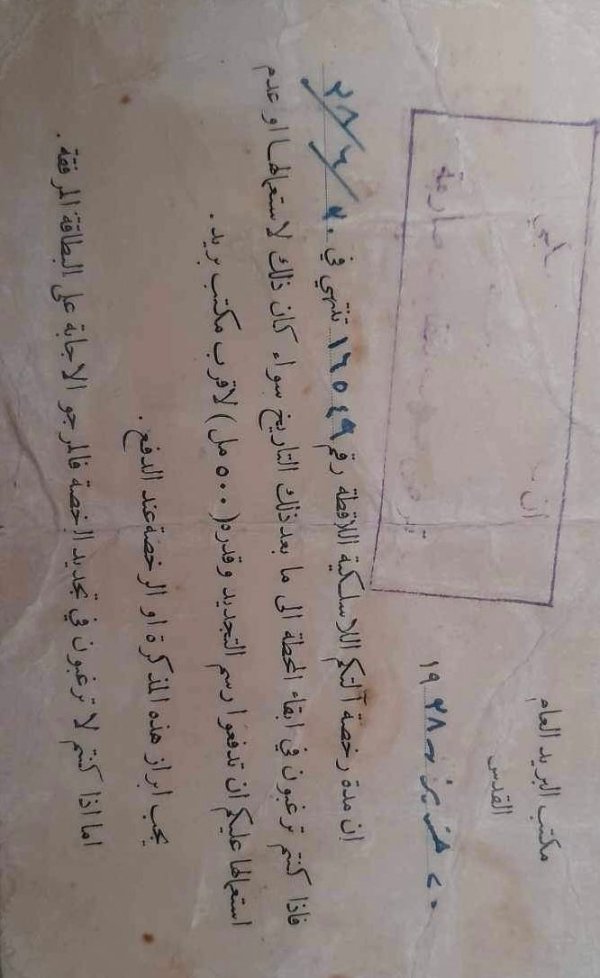 مكتب البريد العام
القدس
٢٠ حزيران ١٩٣٨
ان مدة رخصة آلتكم اللاسلكية اللاقطة رقم ١٦٥٤٩ تنتهي في ٣٨/٦/٣٠
فاذا كنتم ترغبون في ابقاء المحطة الى ما بعد ذلك التاريخ سواء كان ذلك لاستعمالها او عدم
استعمالها عليكم ان تدفعوا رسم التجديد وقدره (٥٠٠ مل) لاقرب مكتب بريد.
يجب ابراز هذه المذكرة او الرخصة عند الدفع.
اما اذا كنتم لا ترغبون في تجديد الرخصة فالمرجو الاجابة على البطاقة المرفقة.